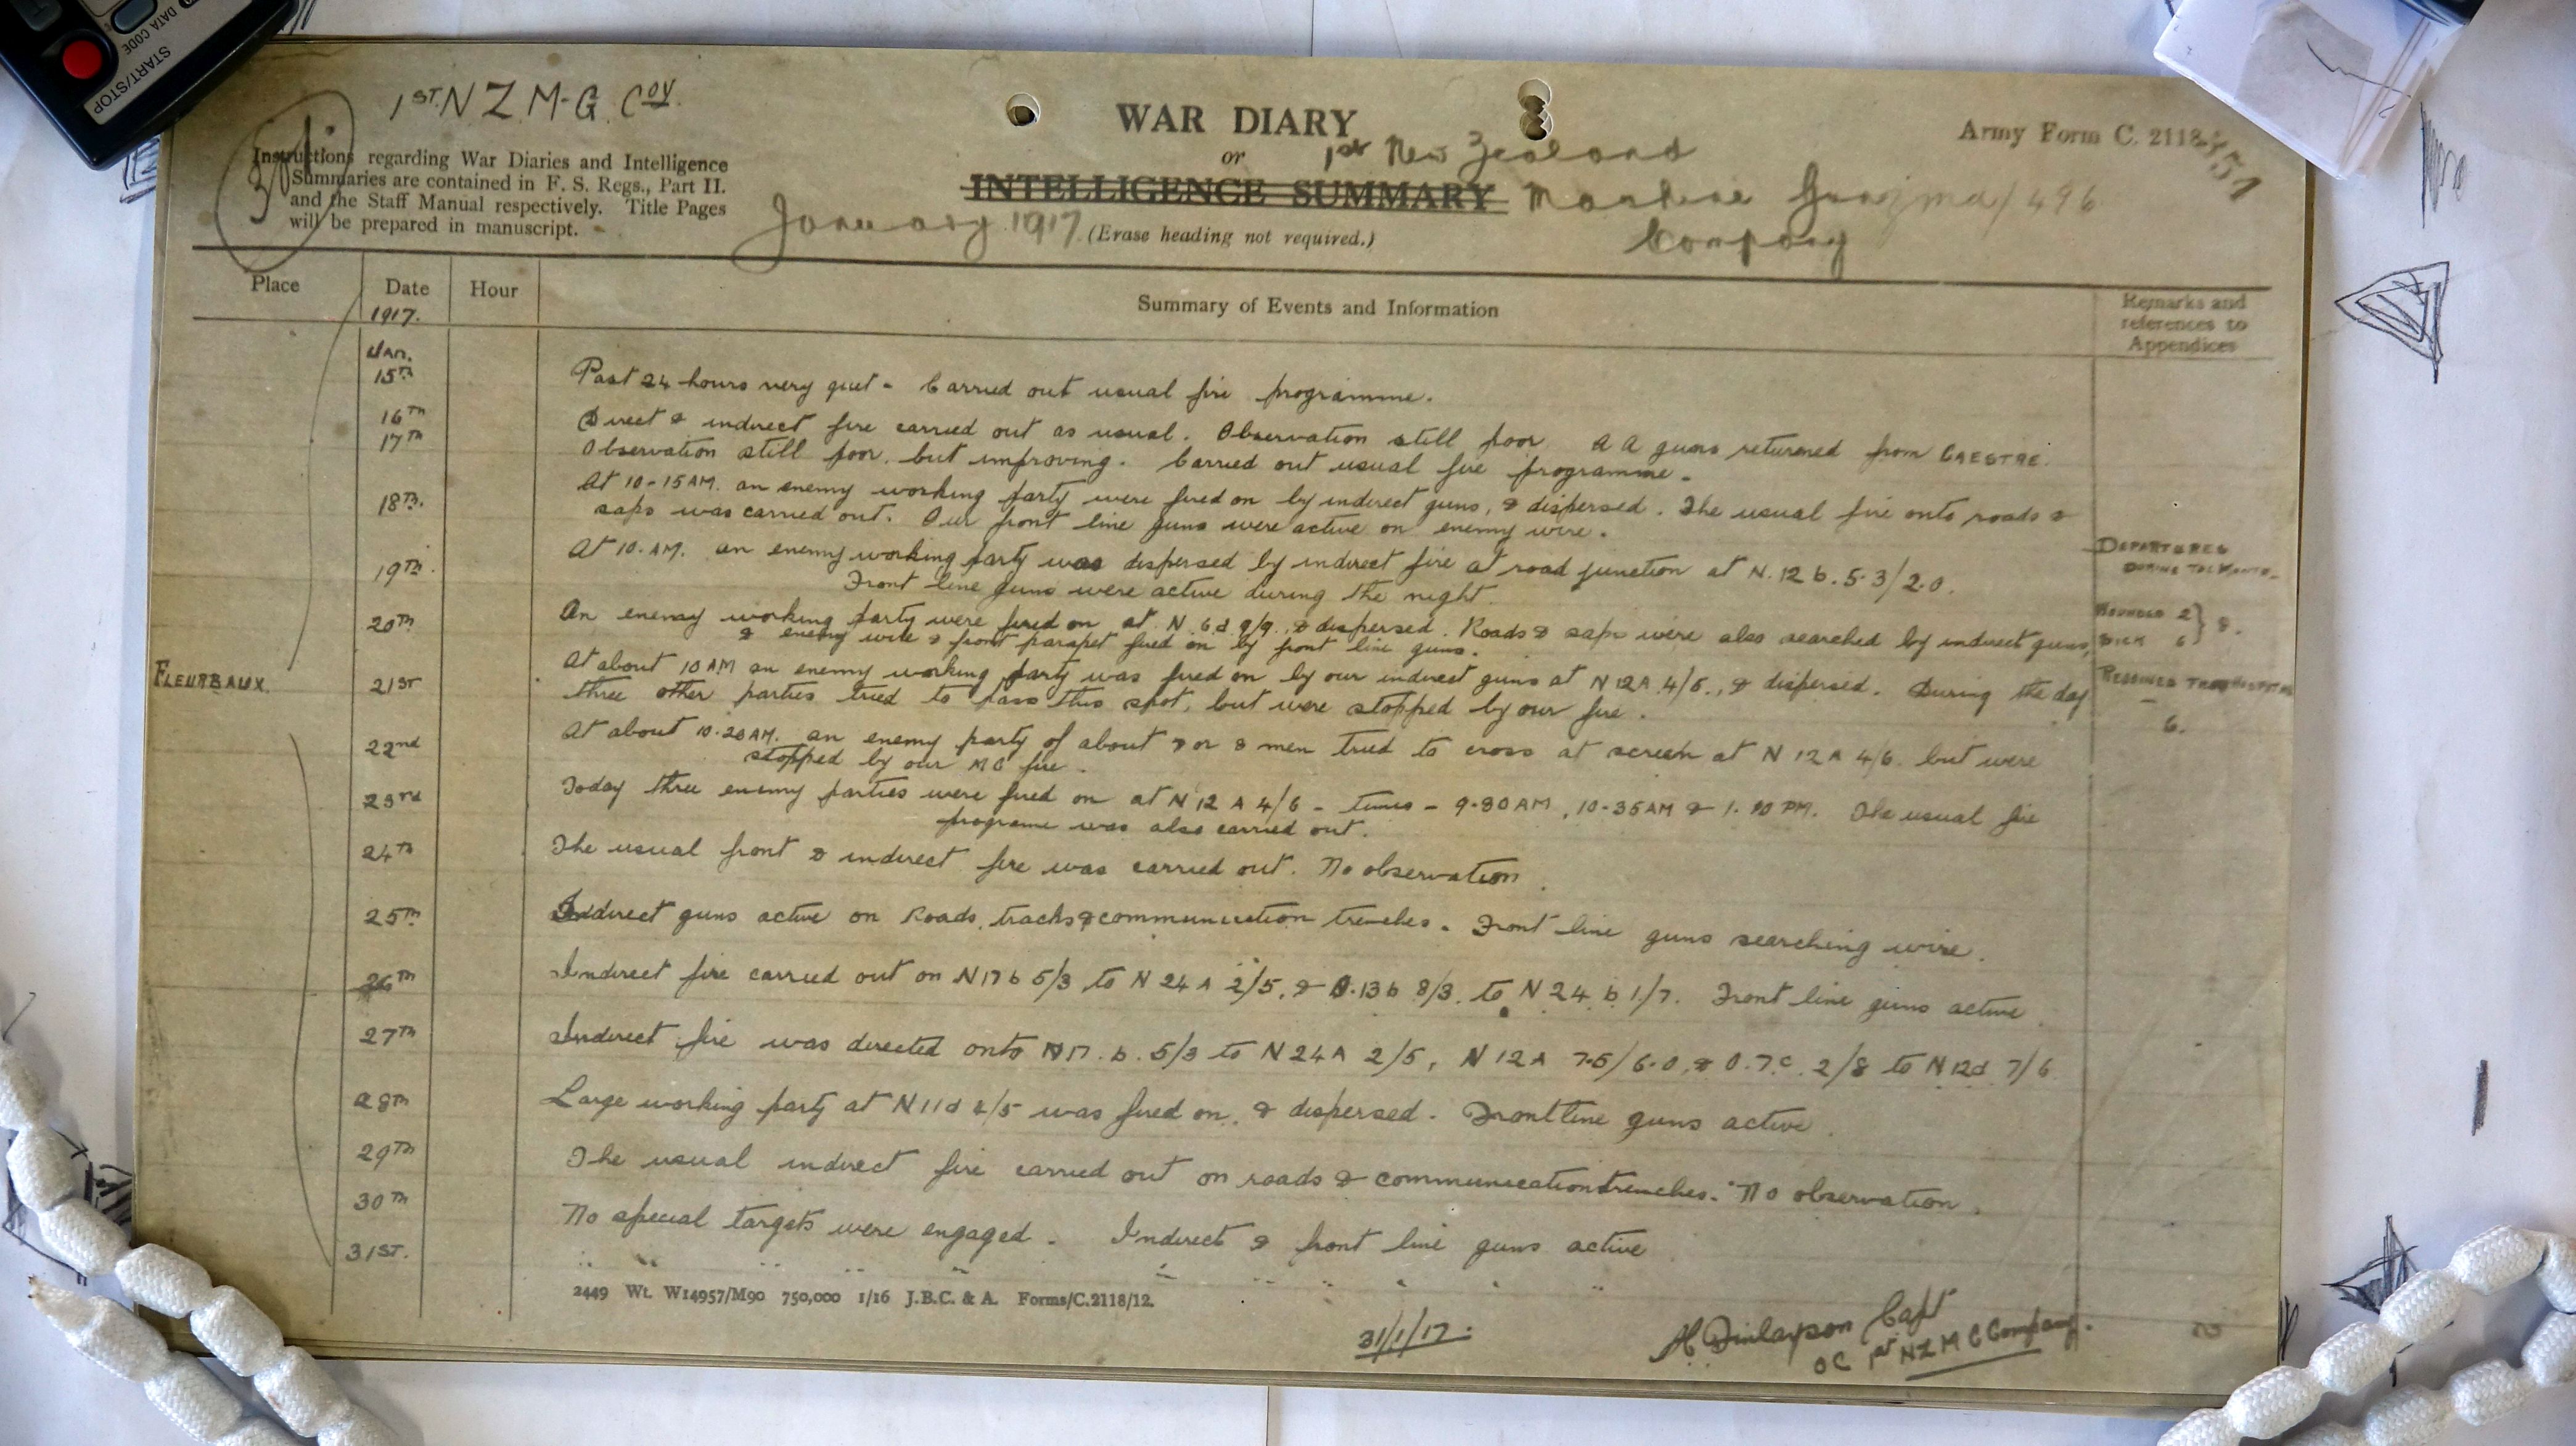 START/STOP
DATA CODE
1ST. N Z. M-G. COY.
WAR DIARY
or
1st New Zealand
INTELLIGENCE SUMMARY Machine Gun
Company
January 1917. (Erase heading not required.)
Army Form C. 2118
Instructions regarding War Diaries and Intelligence
Summaries are contained in F. S. Regs., Part II.
and the Staff Manual respectively. Title Pages
will be prepared in manuscript.
Place Date Hour Summary of Events and Information Remarks and references to Appendices
1917.
Jan.
15th Past 24 hours very quiet - Carried out usual fire programme.
16th Direct & indirect fire carried out as usual. Observation still poor. A A guns returned from CAESTRE.
17th Observation still poor, but improving. Carried out usual fire programme.
18th. At 10-15AM. an enemy working party were fired on by indirect guns, & dispersed. The usual fire onto roads &
saps was carried out. Our front line guns were active on enemy wire.
19th. At 10.AM. an enemy working party was dispersed by indirect fire at road junction at N.12 b.5.3/2.0.
Front line guns were active during the night.
20th An enemy working party were fired on at N 6d 9/9., & dispersed. Roads & saps were also searched by indirect guns,
& enemy wire & front parapet fired on by front line guns.
FLEURBAUX.
21ST At about 10 AM an enemy working party was fired on by our indirect guns at N 12A 4/6., & dispersed. During the day
three other parties tried to pass this spot, but were stopped by our fire.
22nd At about 10.20AM. an enemy party of about 7 or 8 men tried to cross at screen at N 12A 4/6. but were
stopped by our MG fire.
23rd Today three enemy parties were fired on at N 12 A 4/6 - times - 9.30AM, 10-35AM & PM. The usual fire
programe was also carried out.
24th The usual front & indirect fire was carried out. No observation.
25th Indirect guns active on Roads, tracks & communication trenches. Front line guns searching wire.
26th Indirect fire carried out on N17b 5/3 to N 24 A 2/5, & O.13b 8/3. to N 24 b 1/7. Front line guns active
27th Indirect fire was directed onto N17.b. 5/3 to N 24A 2/5, N 12A 7.5/6.0, & O.7.c. 2/8 to N12d 7/6
28th Large working party at N11d 4/5 was fired on, & dispersed. Front line guns active.
29th The usual indirect fire carried out on roads & communication trenches. No observation.
30th No special targets were engaged. Indirect & front line guns active
31ST. " " " " " " " " " "
DEPARTURES
DURING THE MONTH-
WOUNDED 2 } 8.
SICK 6
REJOINED FROM HOSPITAL
- 6.
2449 Wt. W14957/M90 750,000 1/16 J.B.C. & A. Forms/C.2118/12.
31/1/17.
H Finlayson Capt
OC 1st NZ M G Company.